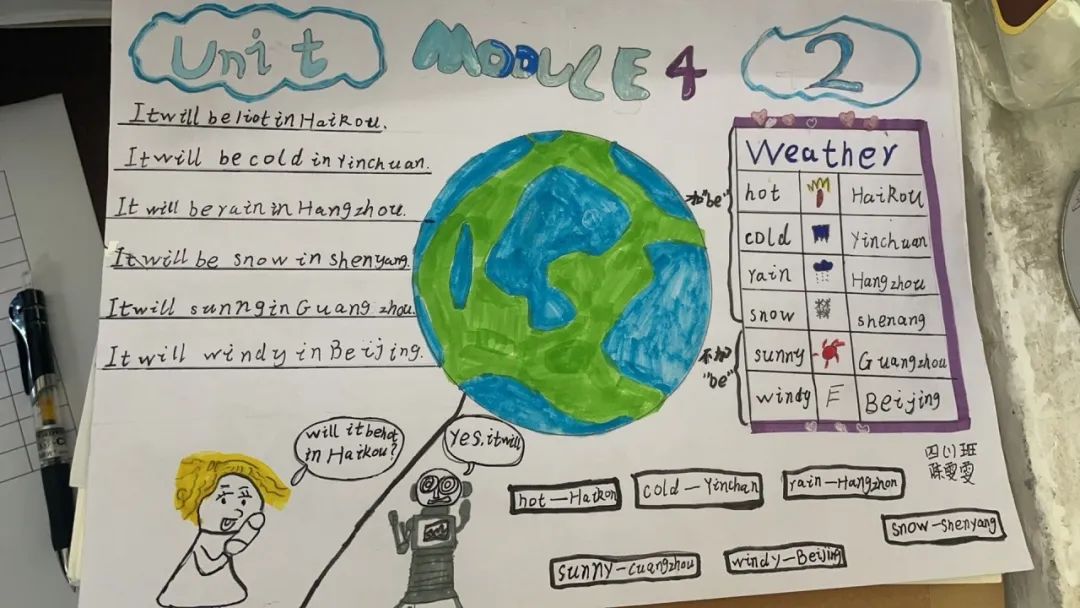 Unit MODULE 4 2
It will be hot in Haikou.
It will be cold in Yinchuan.
It will be rain in Hangzhou.
It will be snow in shenyang.
It will sunng in Guangzhou.
It will windy in Beijing.
加"be"
不加
"be"
Weather
hot Haikou
cold Yinchuan
rain Hangzhou
snow shenang
sunny Guangzhou
windy E Beijing
will it be hot
in Haikou?
Yes. it will
四(1)班
陈雯雯
hot—Haikou
cold—Yinchan
rain—Hangzhou
snow—shenyang
sunny—Guangzhou
windy—Beijing